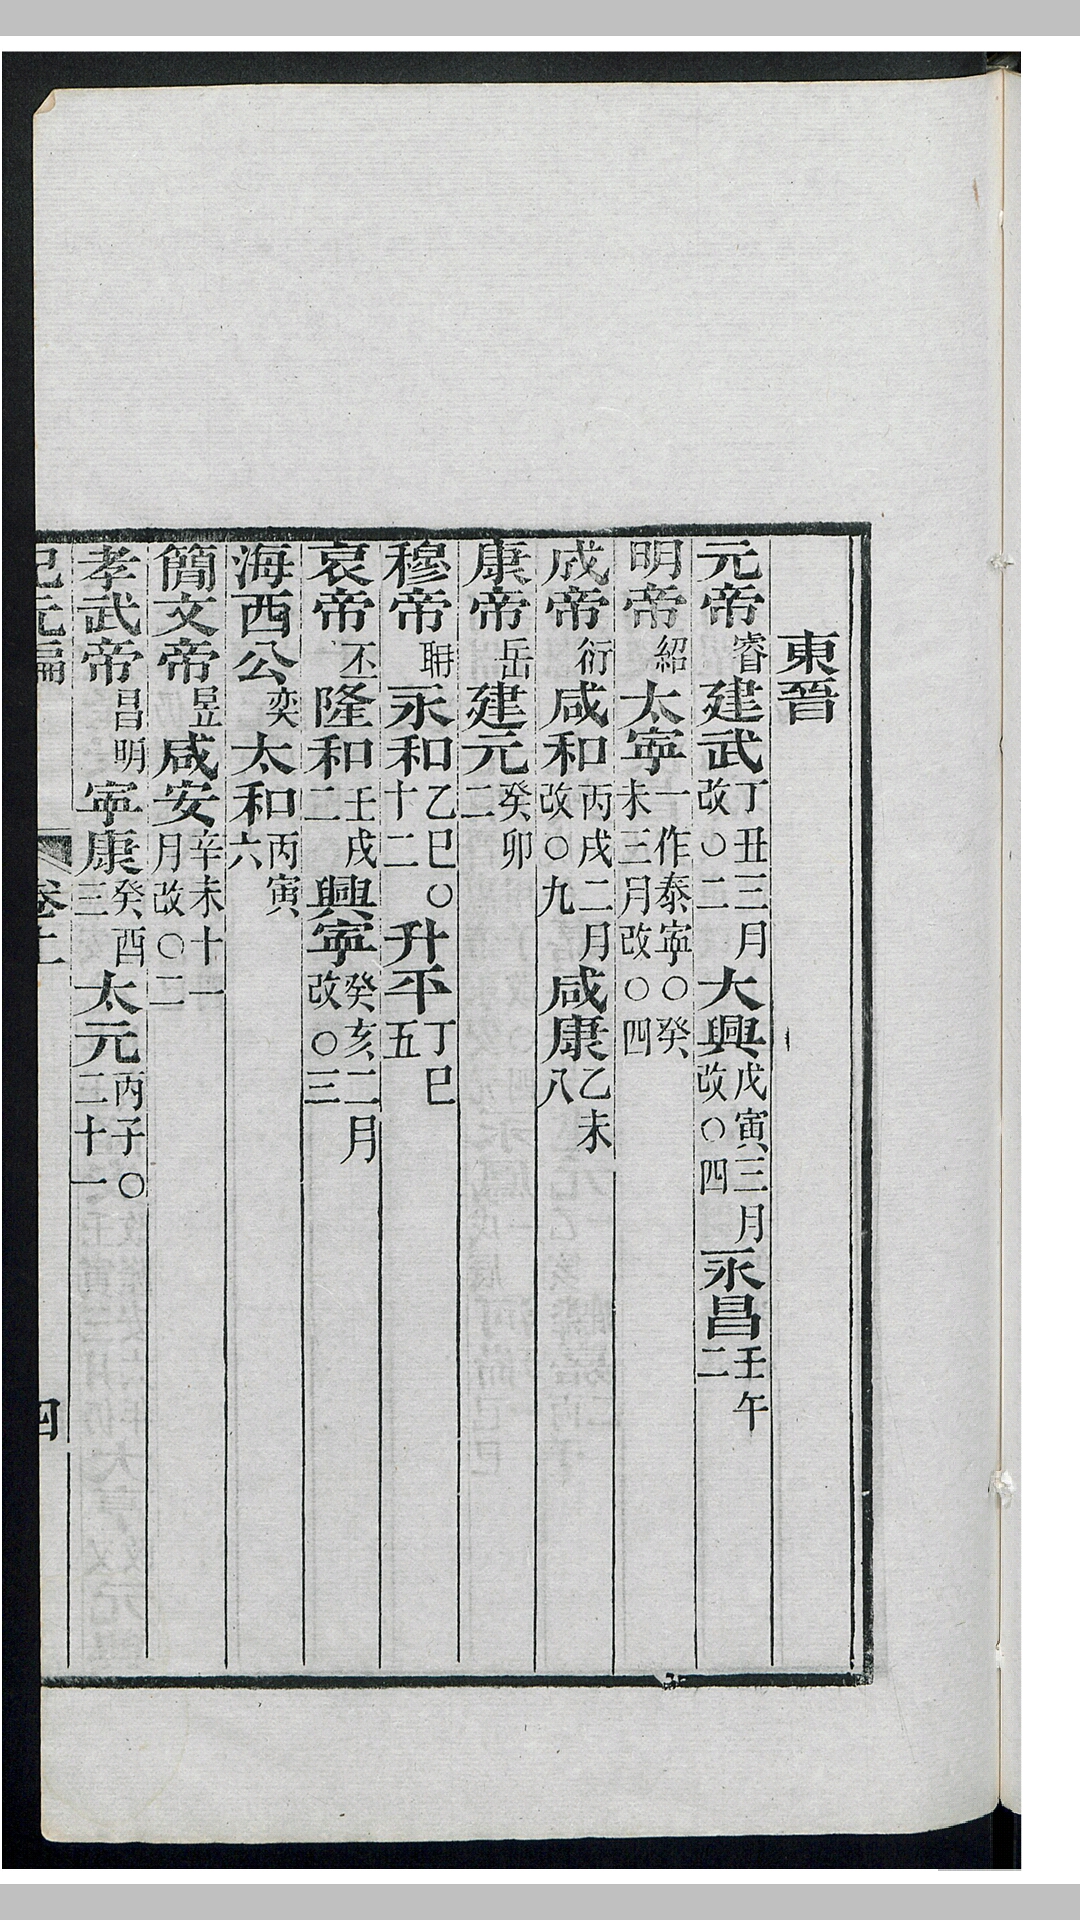 東晉
元帝睿建武丁丑三月改○二大興戊寅三月改○四永昌壬午二
明帝紹太寧一作泰寧○癸未三月改○四
成帝衍咸和丙戌二月改○九咸康乙未八
康帝岳建元癸卯二
穆帝耼永和乙巳○十二升平丁巳五
哀帝丕隆和壬戌二興寧癸亥二月改○三
海西公奕太和丙寅六
簡文帝昱咸安辛未十一月改○二
孝武帝昌明寧康癸酉三太元丙子○二十一
紀元編 卷上 四